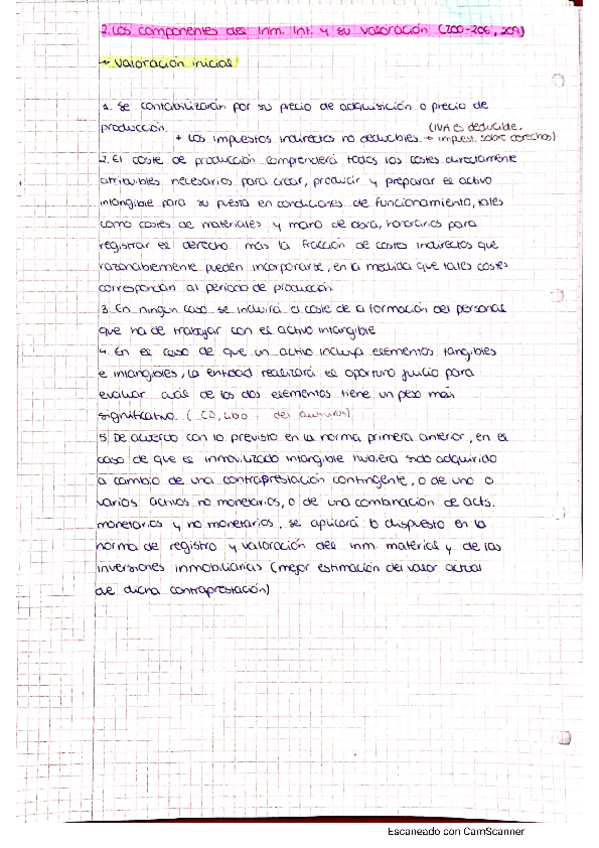 2. Los componentes del Inm. Int. y su valoración (200-206, 209)
→ Valoración inicial
1. Se contabilizarán por su precio de adquisición o precio de
producción.
+ Los impuestos indirectos no deducibles. (IVA es deducible.
+ impuest. sobre derechos)
2. El coste de producción comprenderá todos los costes directamente
atribuibles necesarios para crear, producir y preparar el activo
intangible para su puesta en condiciones de funcionamiento, tales
como costes de materiales y mano de obra, honorarios para
registrar el derecho más la fracción de costes indirectos que
razonablemente pueden incorporarse, en la medida que tales costes
correspondan al periodo de producción
3. En ningún caso se incluirá el coste de la formación del personal
que ha de trabajar con el activo intangible
4. En el caso de que un activo incluya elementos tangibles
e intangibles, la entidad realizará el oportuno juicio para
evaluar cuál de los dos elementos tiene un peso más
significativo. (CD, del antivirus)
5. De acuerdo con lo previsto en la norma primera anterior, en el
caso de que el inmovilizado intangible hubiera sido adquirido
a cambio de una contraprestación contingente, o de uno o
varios activos no monetarios, o de una combinación de acts.
monetarios y no monetarios, se aplicará lo dispuesto en la
norma de registro y valoración del inm. material y de las
inversiones inmobiliarias (mejor estimación del valor actual
de dicha contraprestación)
Escaneado con CamScanner